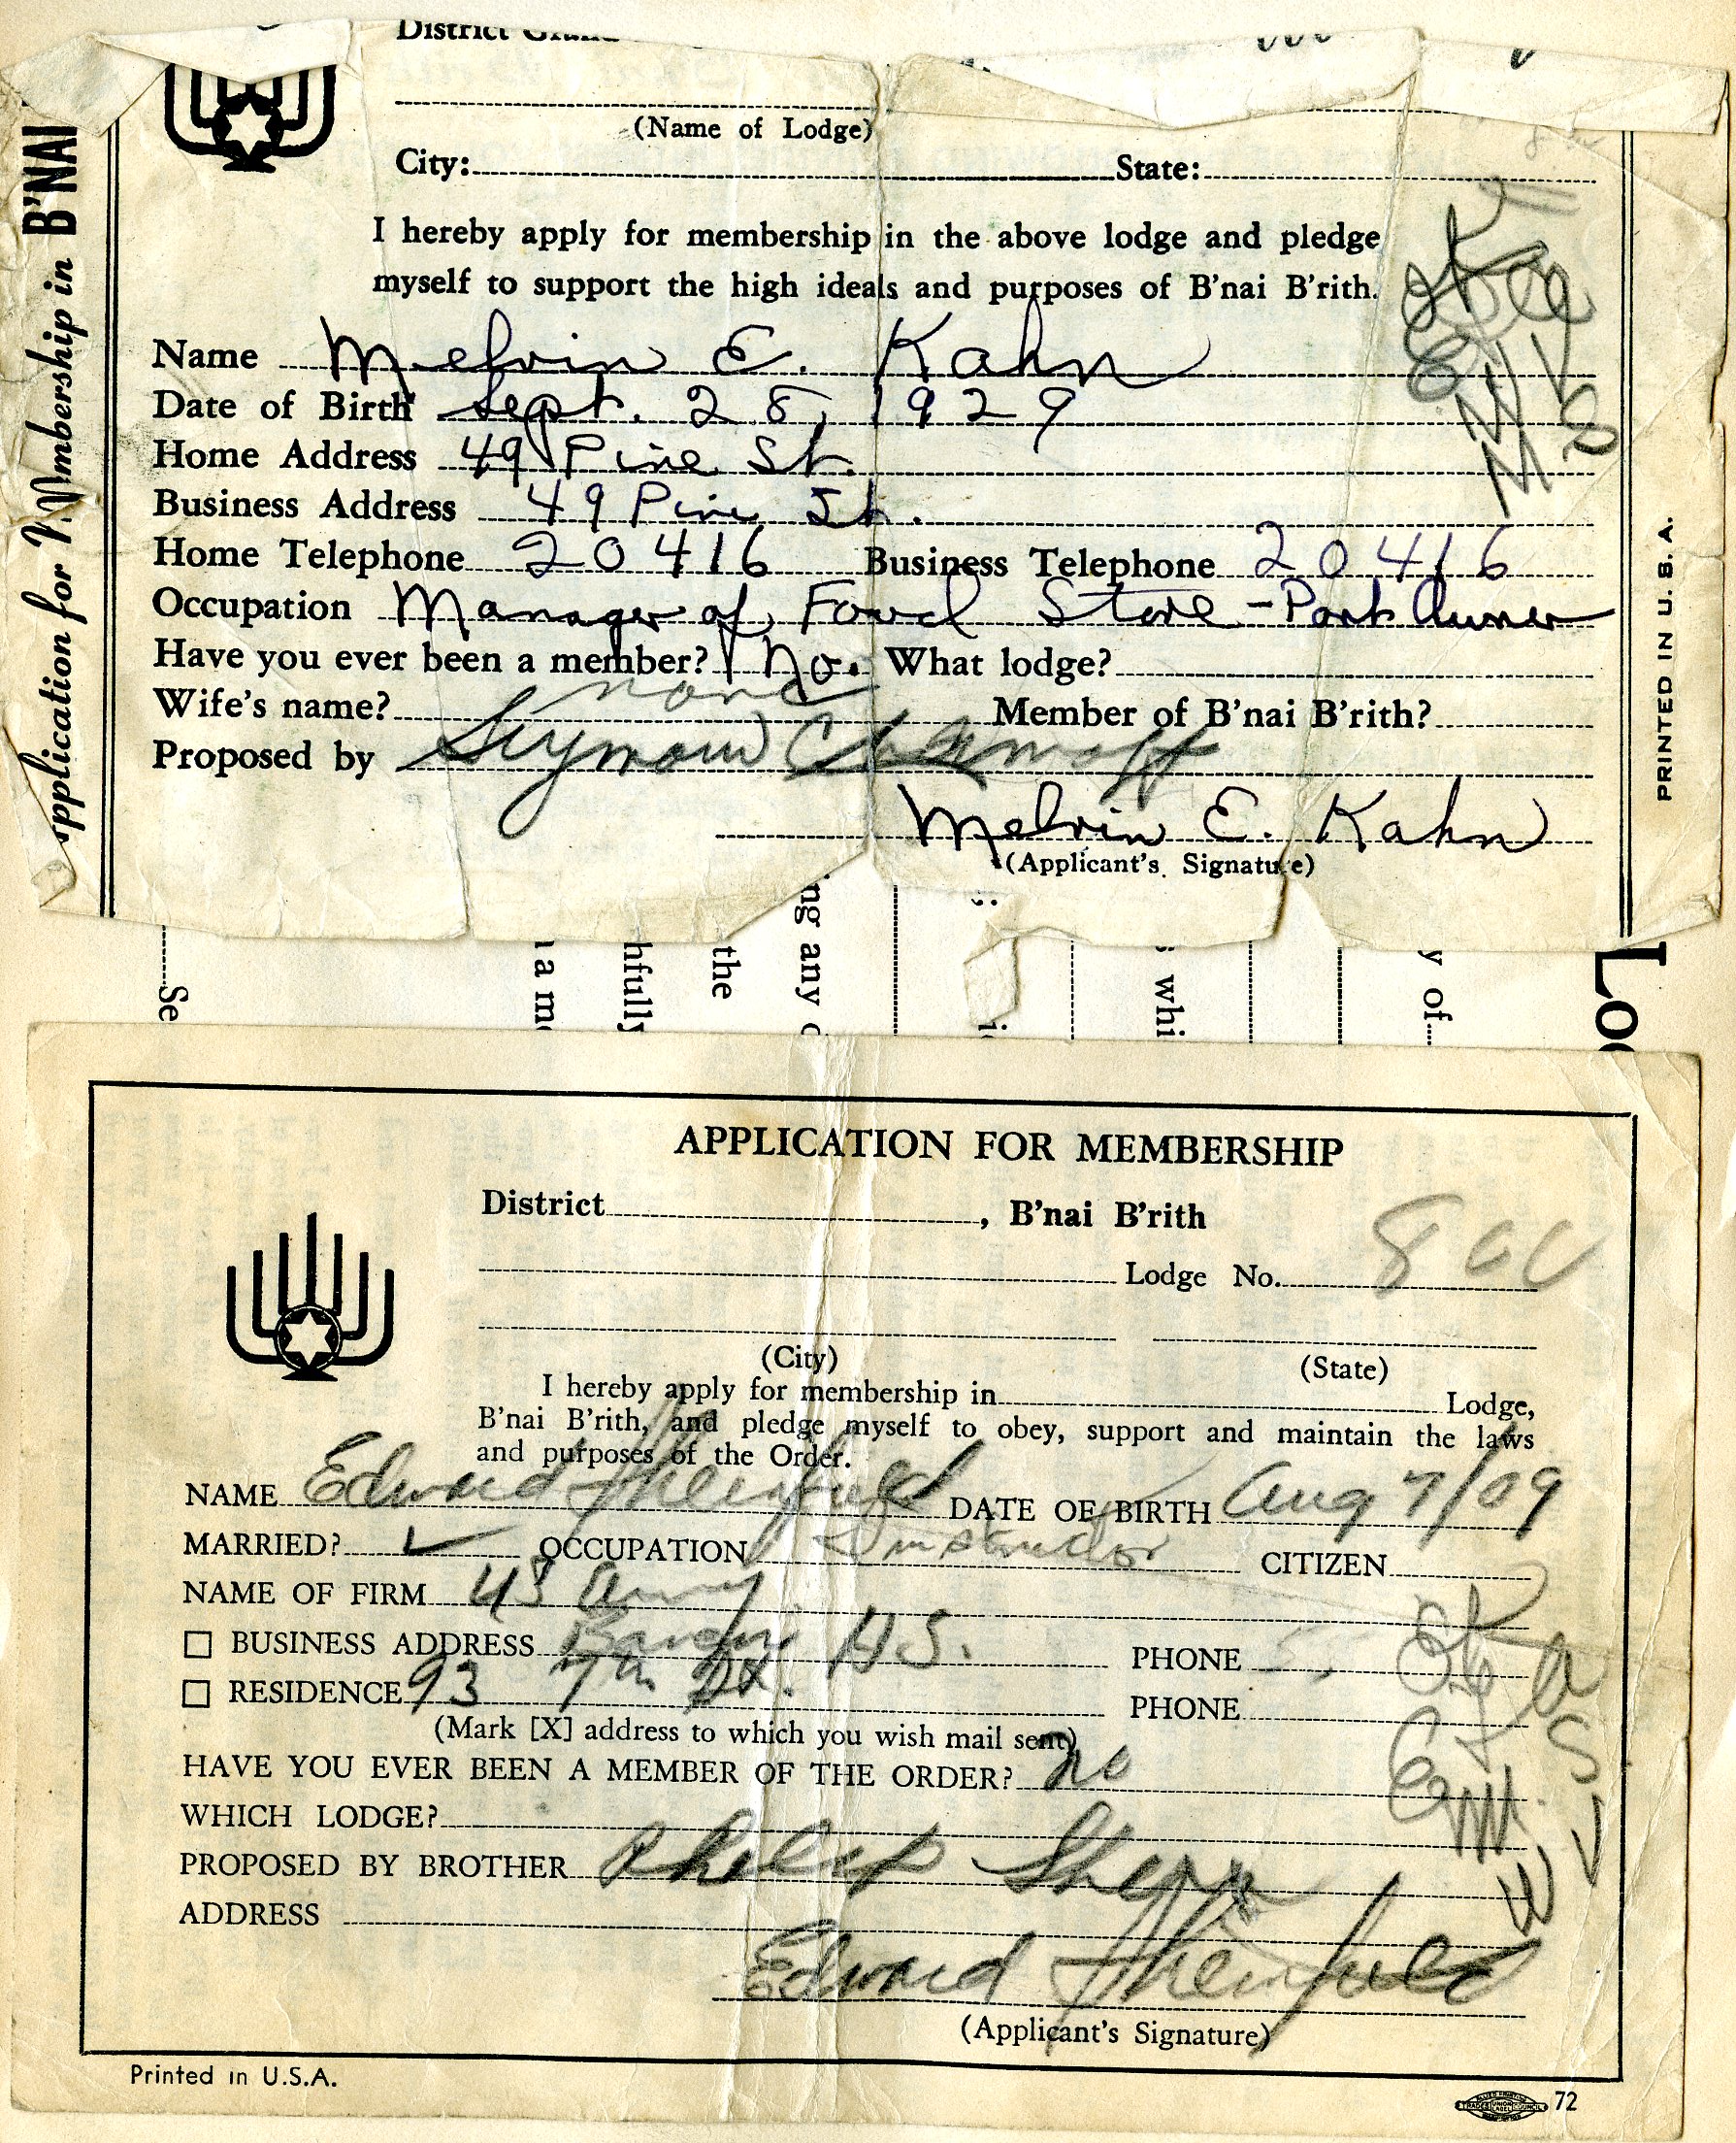 District
(Name of Lodge)
City: State:
I hereby apply for membership in the above lodge and pledge
myself to support the high ideals and purposes of B'nai B'rith.
Name Melvin E. Kahn
Date of Birth Sept. 28, 1929
Home Address 49 Pine St.
Business Address 49 Pine St.
Home Telephone 20416 Business Telephone 20416
Occupation Manager of Food Store - Part Owner
Have you ever been a member? no. What lodge?
Wife's name? none Member of B'nai B'rith?
Proposed by Seymour
Melvin E. Kahn
(Applicant's Signature)
Application for Membership in B'NAI
PRINTED IN U. S. A.
Se
a m
hfully
the
ng any
whi
y of
Lo
APPLICATION FOR MEMBERSHIP
District , B'nai B'rith
Lodge No. 800
(City) (State)
I hereby apply for membership in Lodge,
B'nai B'rith, and pledge myself to obey, support and maintain the laws
and purposes of the Order.
NAME Edward DATE OF BIRTH Aug 7/09
MARRIED? ✓ OCCUPATION Instructor CITIZEN
NAME OF FIRM US Army
BUSINESS ADDRESS H.S. PHONE
RESIDENCE 93 7th St. PHONE
(Mark [X] address to which you wish mail sent)
HAVE YOU EVER BEEN A MEMBER OF THE ORDER? no
WHICH LODGE?
PROPOSED BY BROTHER Philip
ADDRESS
Edward
(Applicant's Signature)
Printed in U.S.A.
72